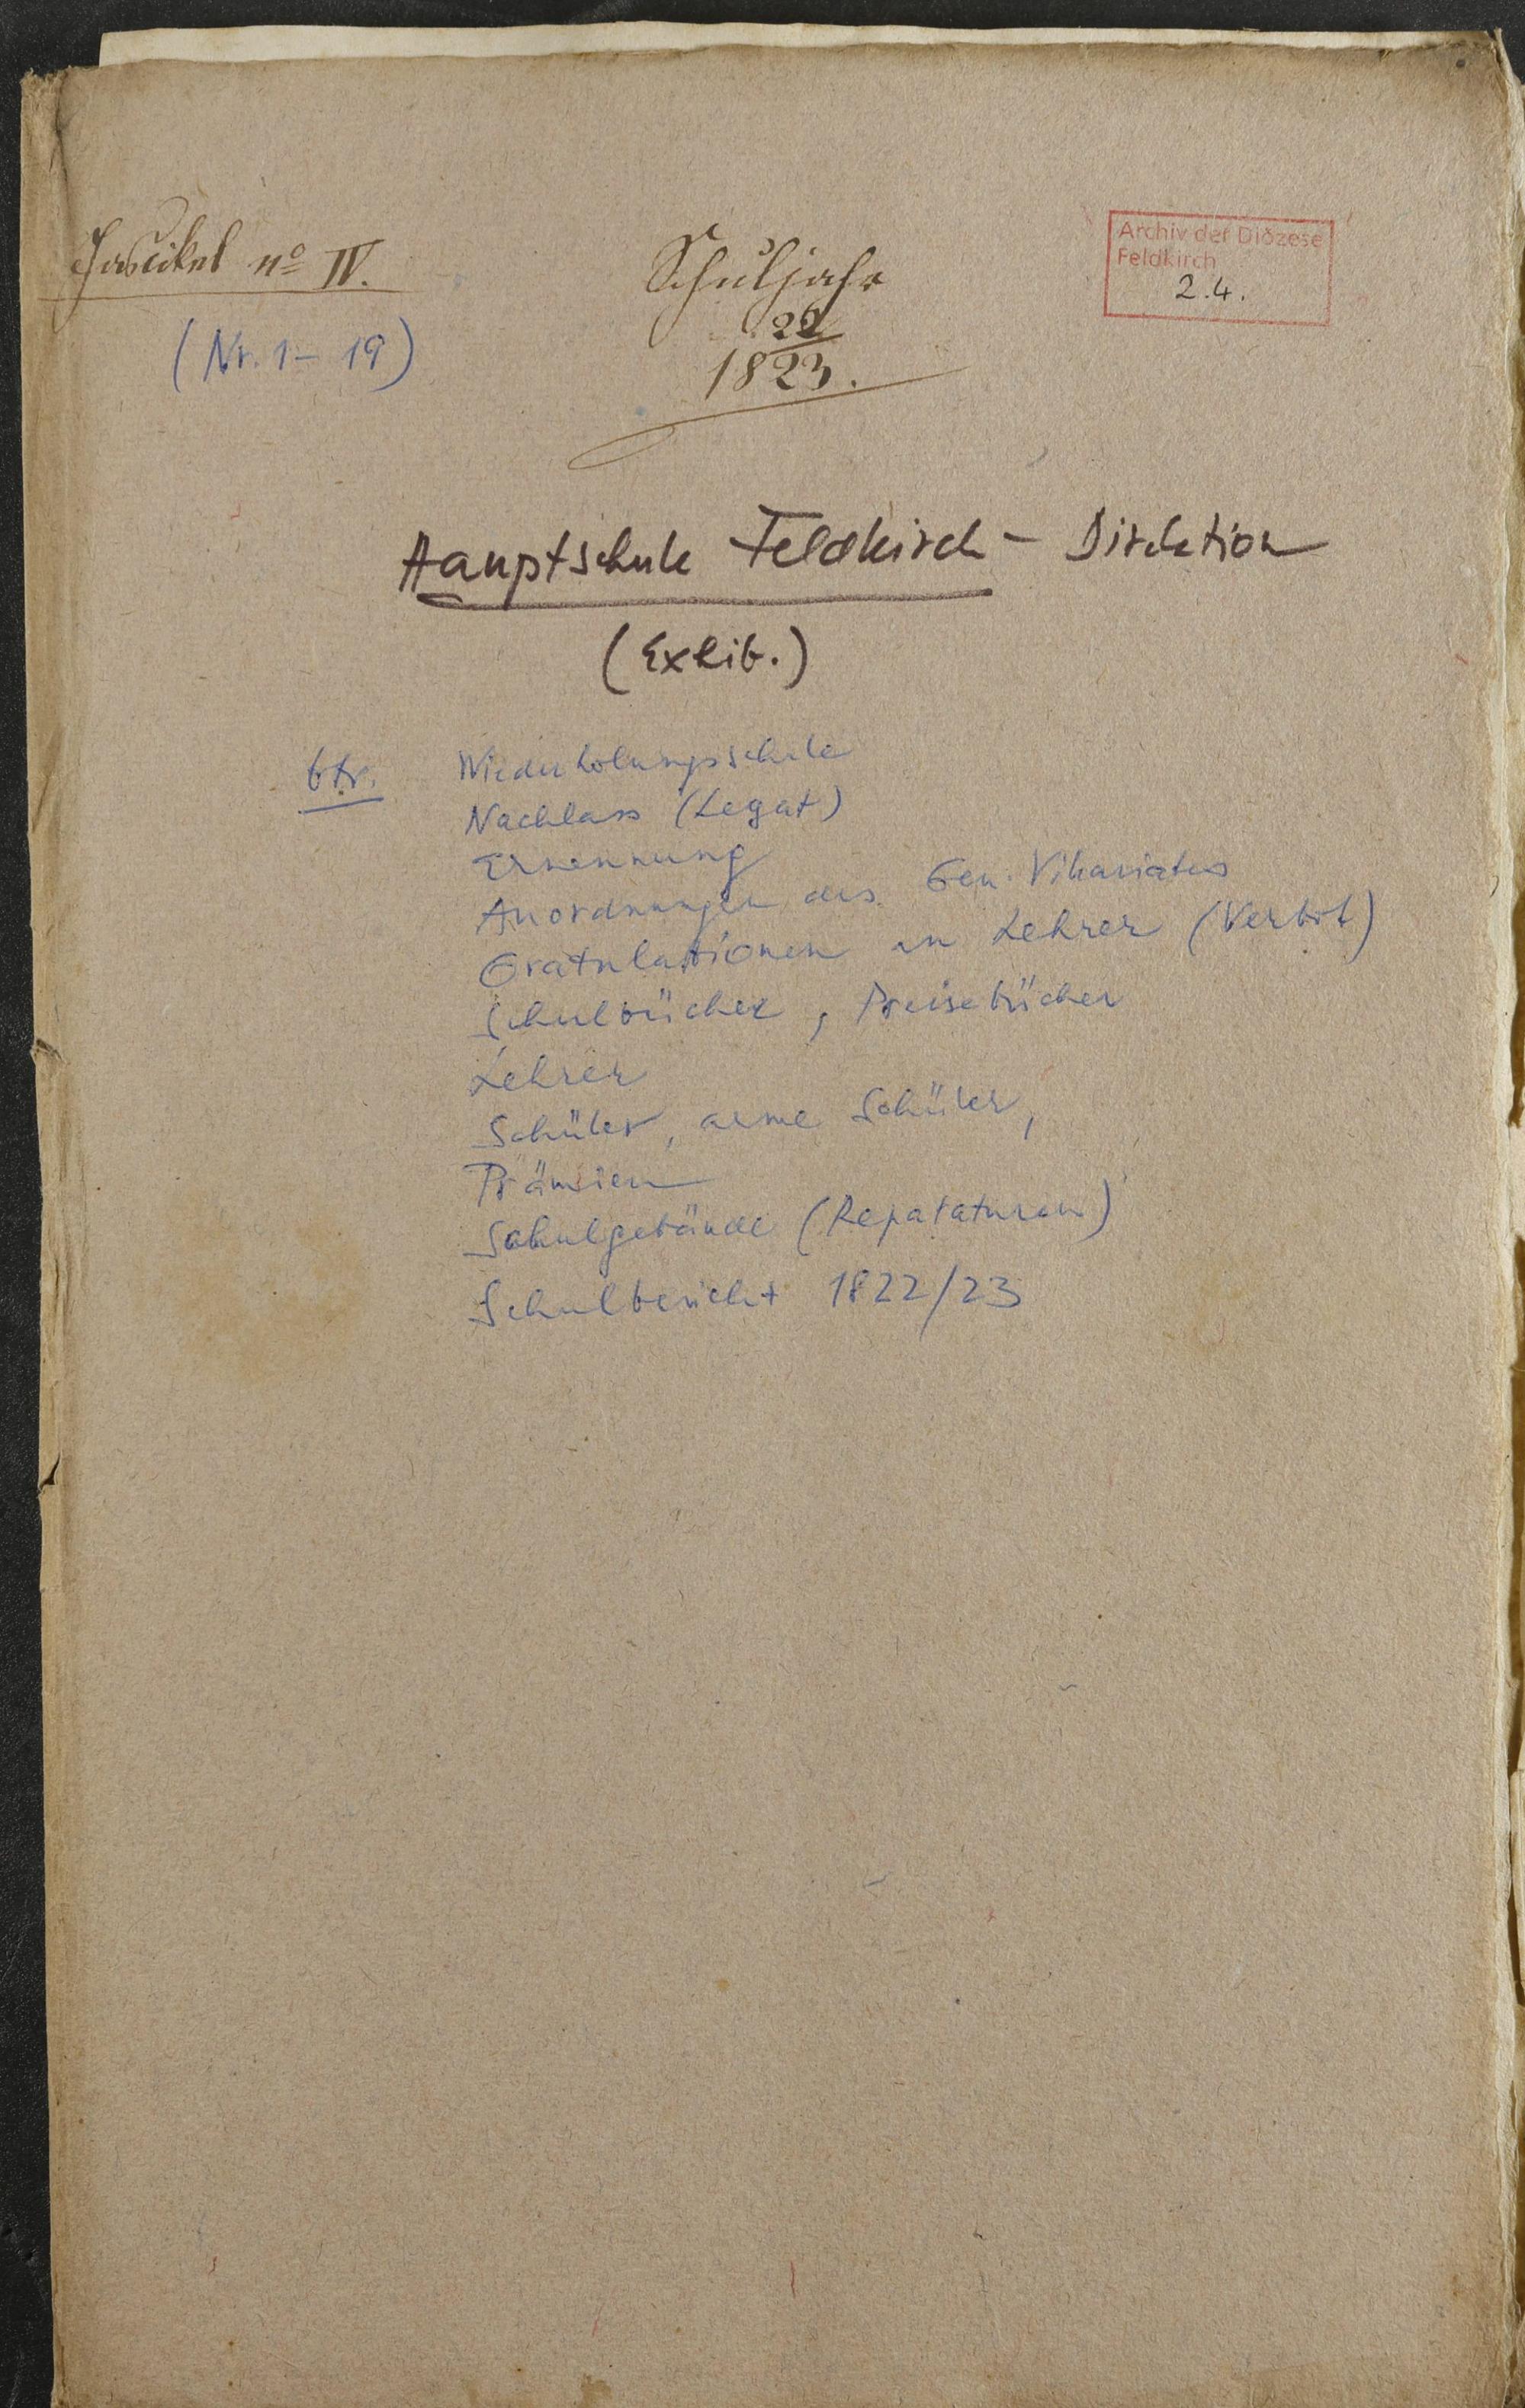 Fascikel nº IV.
(Nr. 1 - 19)
Schuljahr
22
1823.
Archiv der Diözese
Feldkirch
2.4.
Hauptschule Feldkirch - Direktion
(Exhib.)
btr.
Wiederholungsschule
Nachlass (Legat)
Ernennung
Anordnungen des Gen. Vikariates
Gratulationen an Lehrer (Verbot)
Schulbücher, Preisebücher
Lehrer
Schüler, arme Schüler,
Prämien
Schulgebäude (Reparaturen)
Schulbericht 1822/23